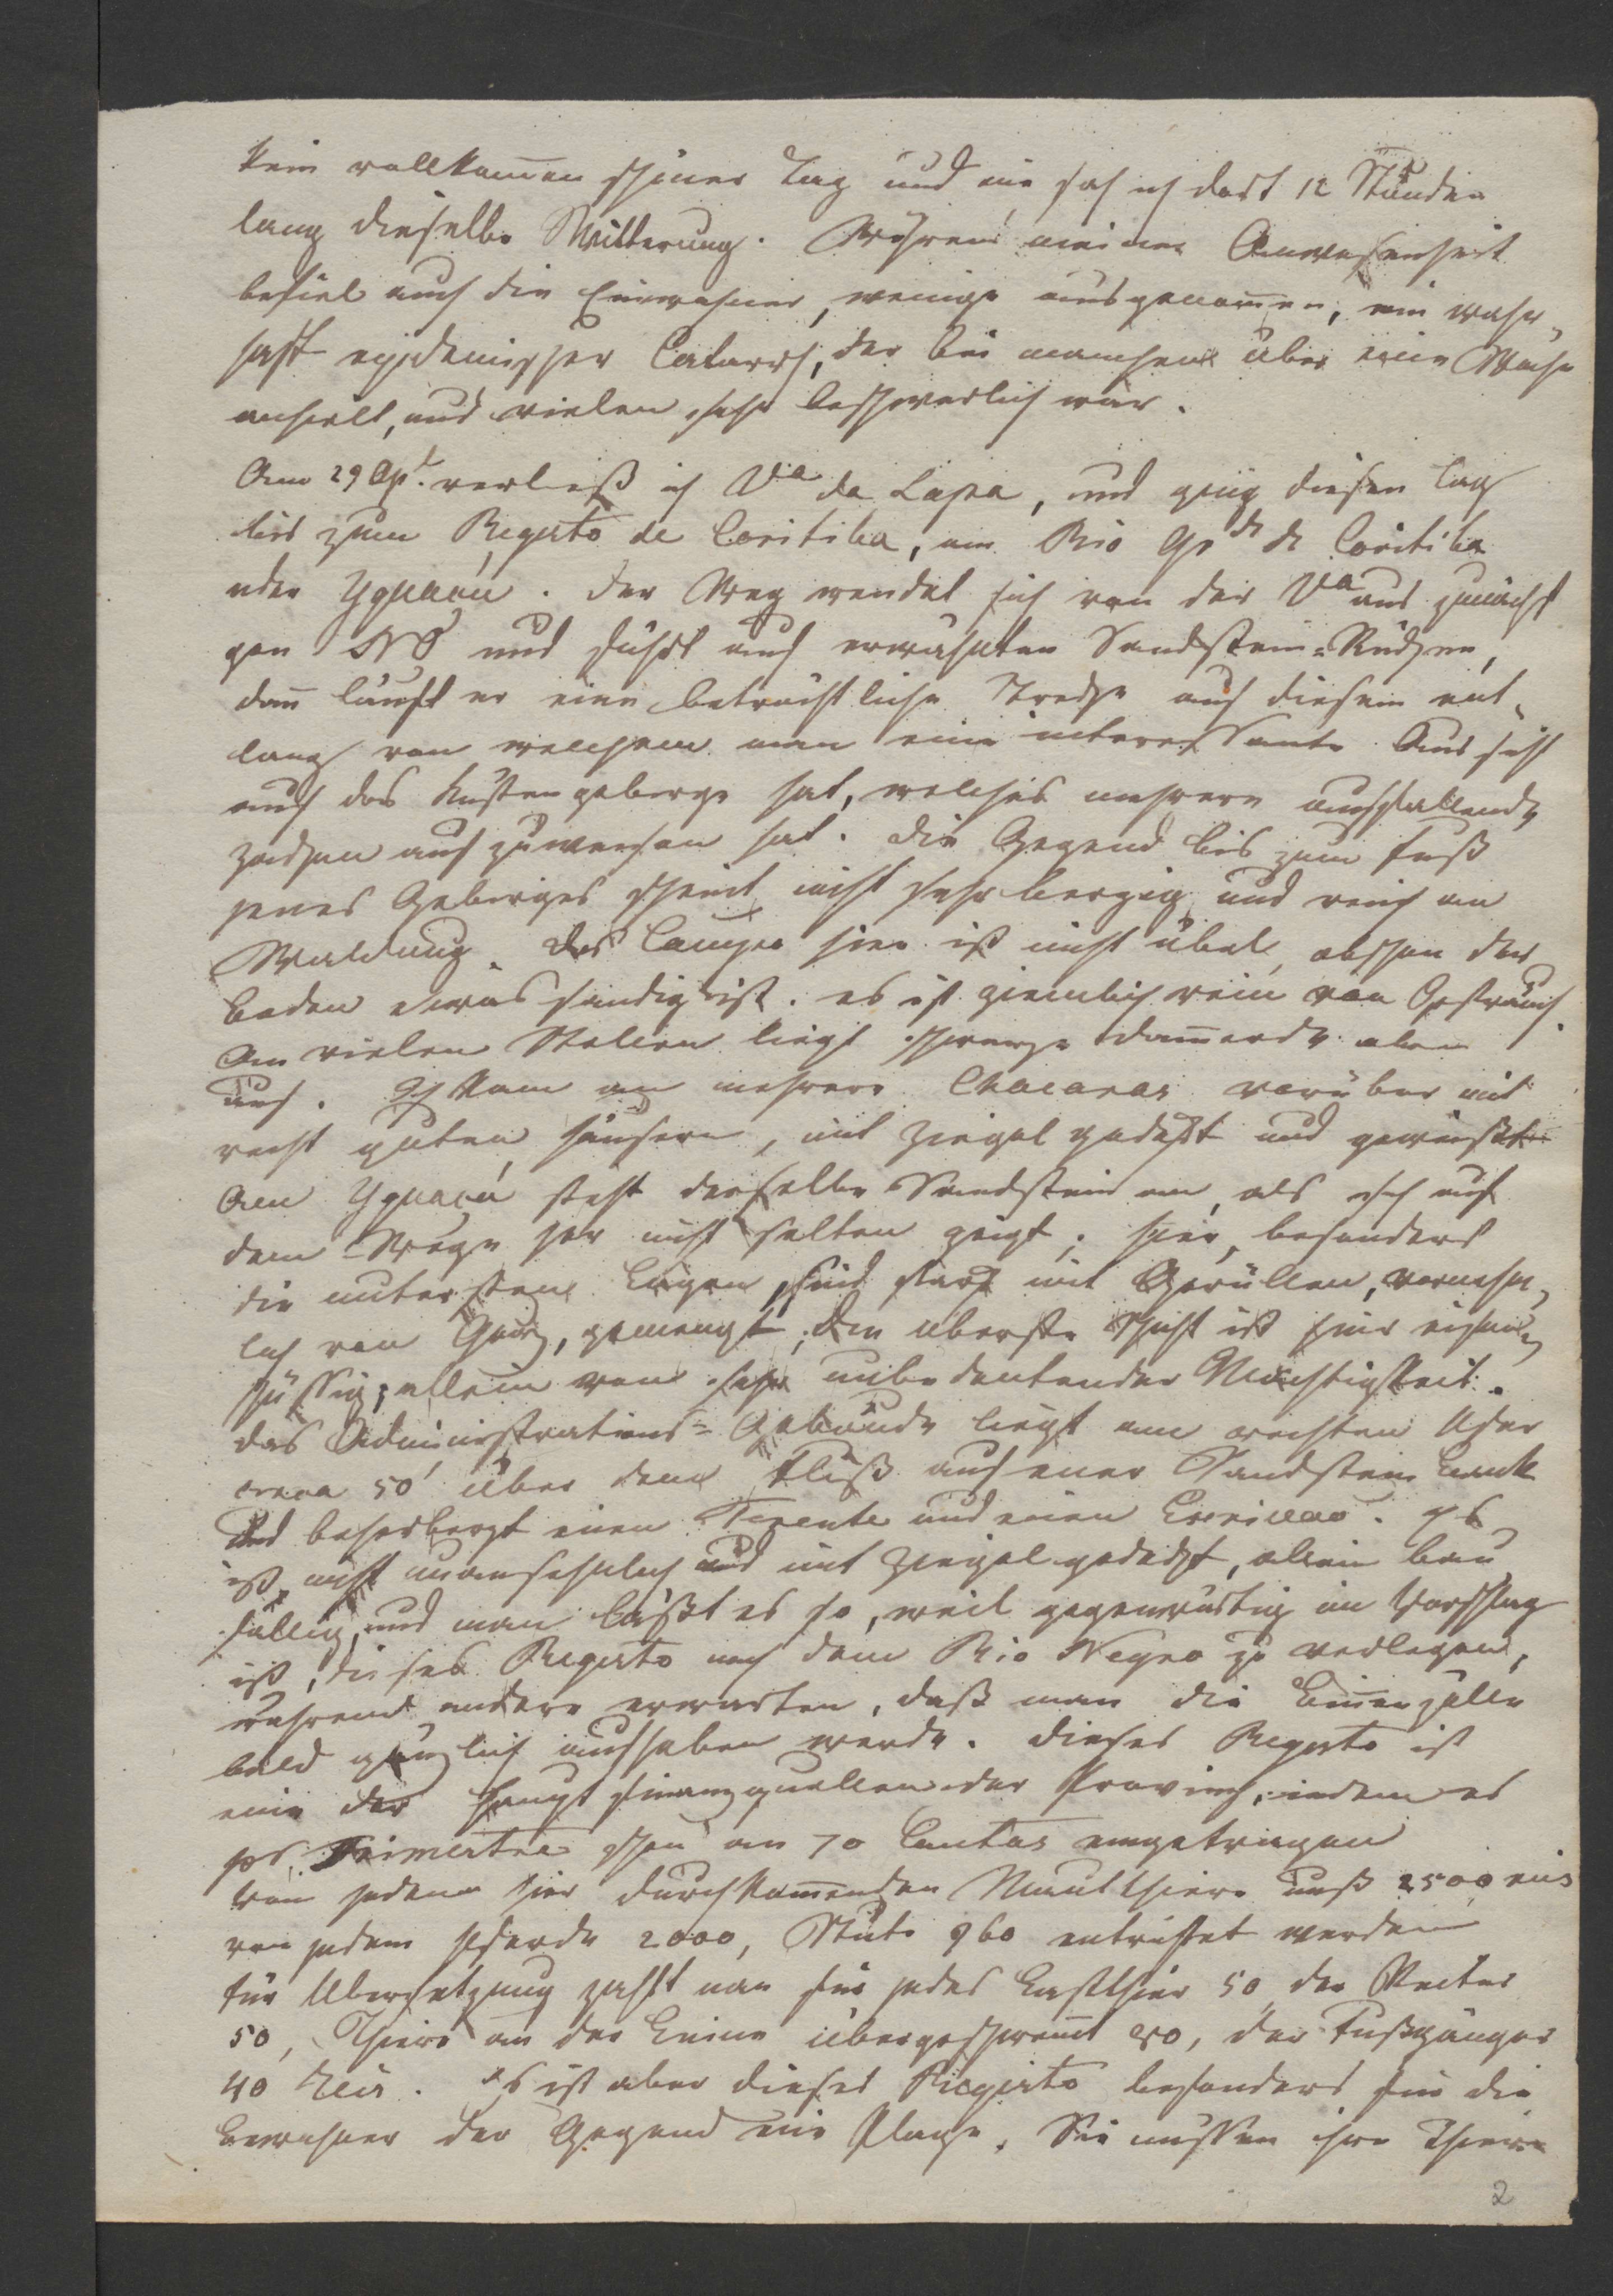 kein vollkom̄en schöner Tag und nie sah ich dort 12 Stunden
lang dieselbe Witterung. Während meiner Anwesenheit
befiel auch die Einwohner, wenige ausgenom̄en, ein wahr-
haft epidemischer Catarrh, der bei manchen über eine Woche
anhielt, und vielen sehr beschwerlich war.
Am 29 Apr. verließ ich Va da Lapa, und ging diesen Tag
bis zum Registo de Coritiba, am Rio Gr de de Coritiba
oder Yguaçú. Der Weg wendet sich von der Va aus zunächst
gen NO und führt auf erwähnten Sandstein-Rücken,
dan̄ läuft er eine beträchtliche Strecke auf diesem ent-
lang von welchem man eine interessante Aussicht
auf das Küstengebirge hat, welches mehrere auffallende
Zacken aufzuweisen hat. Die Gegend bis zum Fuß
jenes Gebirges scheint nicht sehr bergig und reich an
Waldung. Das Campo hier ist nicht übel, obschon der
Boden etwas sandig ist. es ist ziemlich rein von Gesträuch.
An vielen Stellen liegt schwarze Dam̄erde oben
auf. Ich kam an mehrere Chacaras vorüber mit
recht guten Häusern, mit Ziegel gedeckt und geweißt
Am Yguaçú steht derselbe Sandstein an, als sich auf
dem Wege her nicht selten zeigt; hier, besonders
die untersten Lagen, sind stark mit Geröllen, vornehm-
lich von Quarz, gemengt; Die oberste Schicht ist hier eisen-
schüssig, allein von sehr unbedeutender Mächtigkeit.
das Administrations-Gebäude liegt am rechten Ufer
circa 50' über dem Fluß auf einer Sandstein bank
und beherbergt einen Tenente und einen Escrivão. Es
ist nicht unansehnlich und mit Ziegel gedeckt, allein bau
fällig, und man läßt es so, weil gegenwärtig im Vorschlag
ist, dieses Registo nach dem Rio Negro zu verlegen,
während andere erwarten, daß man die Bin̄enzölle
bald gänzlich aufheben werde. Dieses Registo ist
eine der Haupt finanzquellen der Provinz, indem es
pr. Trimestre schon an 70 Contos eingetragen
Von jedem hier durchkom̄enden Maulthiere muß 2500 reis
von jedem Pferde 2000, Stute 960 entrichtet werden
für Übersetzung zahlt man für jedes Lastthier 50, der Reiter
50, Thiere an der Leine übergeschwem̄t 20, der Fußgänger
40 Reis. Es ist aber dieses Registo besonders für die
Bewohner der Gegend eine Plage. Sie müssen ihre Thiere
2